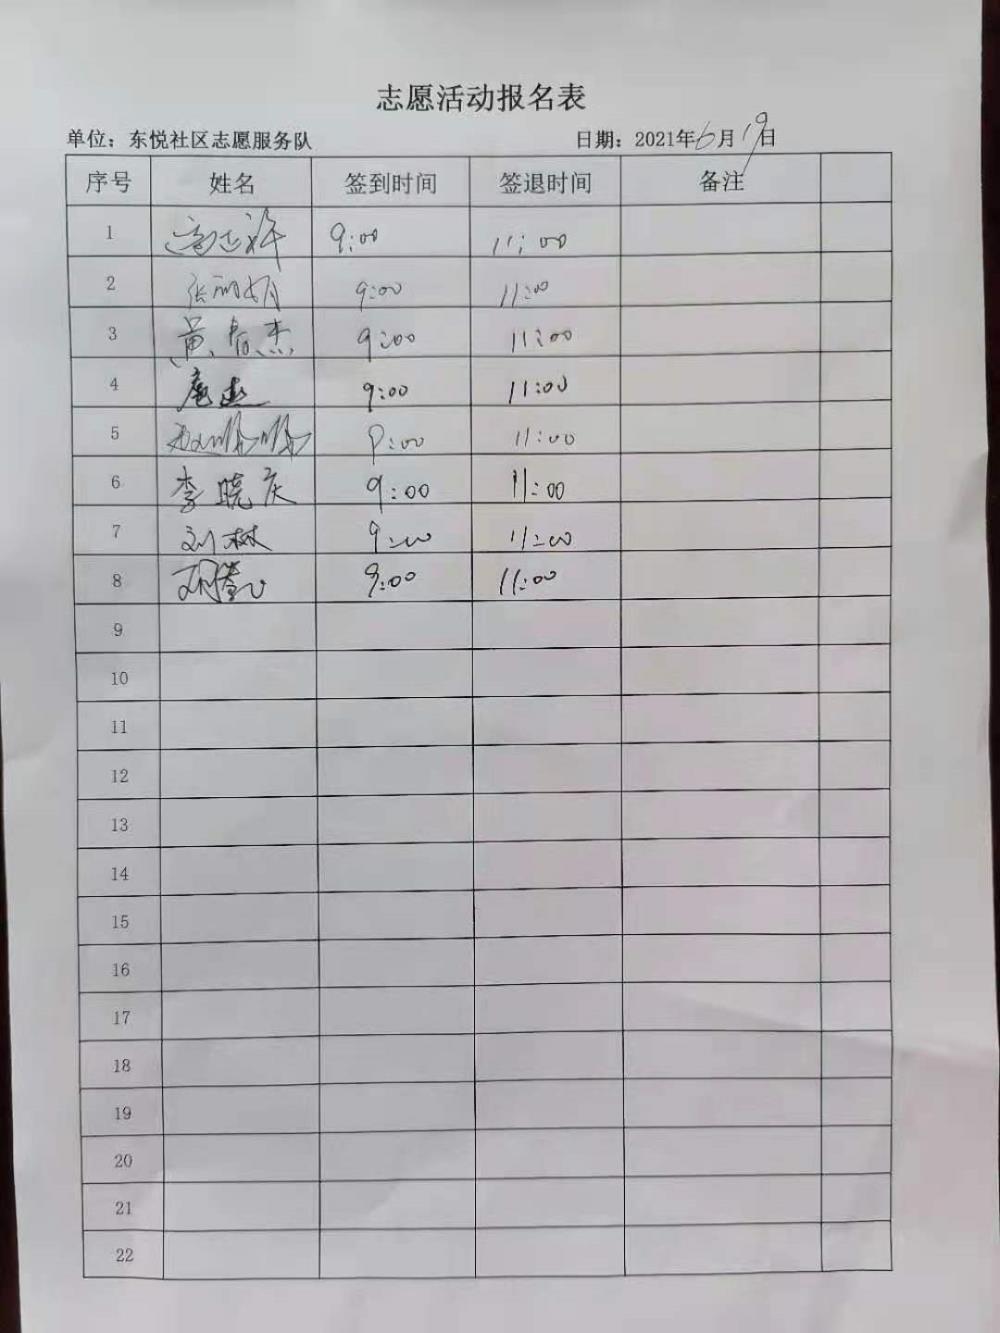 志愿活动报名表
单位：东悦社区志愿服务队 日期：2021年6月19日
序号 姓名 签到时间 签退时间 备注
1 高志 9:00 11:00
2 张丽娟 9:00 11:00
3 黄春杰 9:00 11:00
4 9:00 11:00
5 9:00 11:00
6 李晓庆 9:00 11:00
7 刘树 9:00 11:00
8 9:00 11:00
9
10
11
12
13
14
15
16
17
18
19
20
21
22